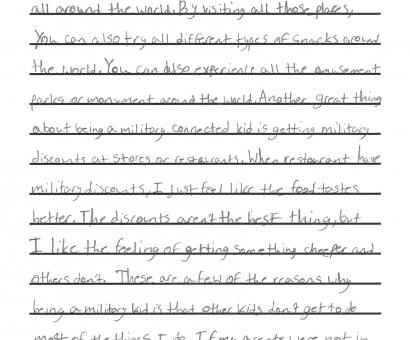 all around the world. By visiting all those places,
You can also try all different types of snacks around
the world. You can also experience all the amusement
parks or monument around the world. Another great thing
about being a military connected kid is getting military
discounts at stores or restaurants. When restaurant have
military discounts, I just feel like the food tastes
better. The discounts aren't the best thing, but
I like the feeling of getting something cheeper and
others don't. These are a few of the reasons why
being a military kid is that other kids don't get to do
most of the things I do. If my were not in